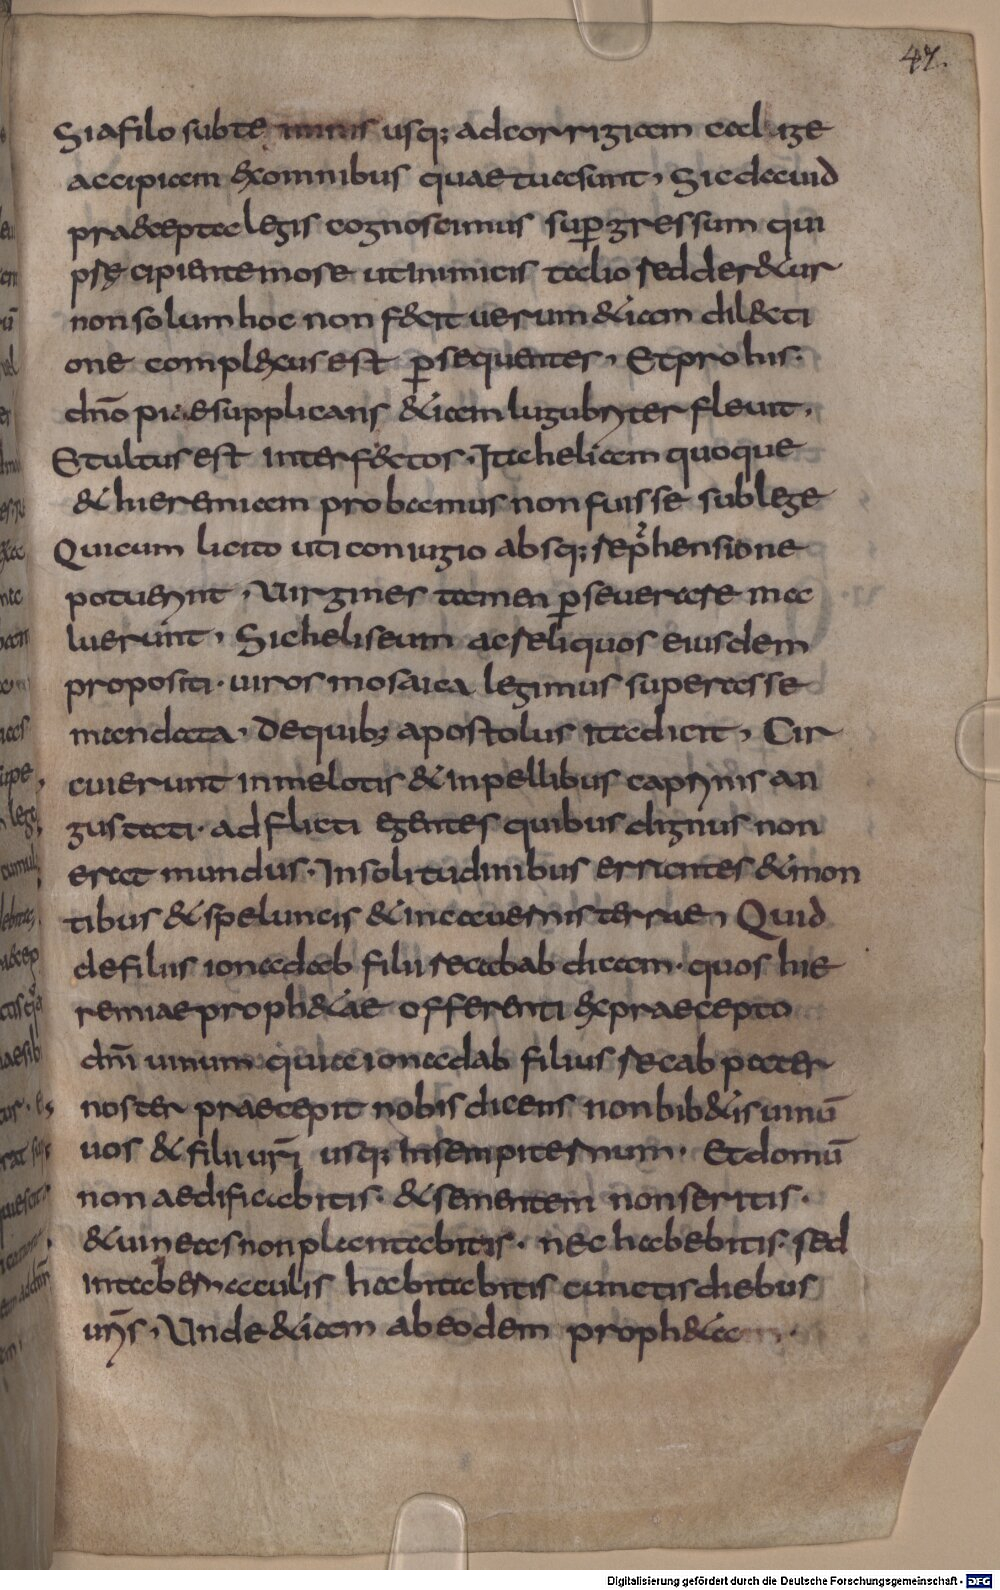 47.
Siafilo subtegminis usq; ad corrigiam caligae
accipiam & ex omnibus quae tua sunt, Sic dauid
praecepta legis cognoscimus supgressum qui
pręcipiente mose ut inimicis talio redderetur
non solum hoc non fecit uerum etiam dilecti
one complexus est psequentes, Et pro his.
dno piae supplicans etiam lugubriter fleuit,
Et ultus est interfectos. Ita heliam quoque
& hieremiam probamus non fuisse sub lege
Qui cum licito uti coniugio absq; reprehensione
potuerint, Virgines tamen pseuerare ma
luerunt, Sic heliseum ac reliquos eiusdem
propositi. uiros mosaica legimus superasse
mandata, De quib; apostolus ita dicit, Cir
cuierunt in melotis & in pellibus caprinis an
gustati. adflicti egentes quibus dignus non
erat mundus. In solitudinibus errantes & mon
tibus & speluncis & in cauernis terrae, Quid
de filiis ionadab filii recabab dicam. quos hie
remiae prophetae offerenti ex praecepto
dni uinum quia ionadab filius recab pater
noster praecepit nobis dicens non bibetis uinū
uos & filii uri usq; in sempiternum. Et domū
non aedificabitis. & sementem non seritis.
& uineas non plantabitis. nec habebitis. sed
in tabernaculis habitabitis cunctis diebus
uris, Vnde etiam ab eodem propheta